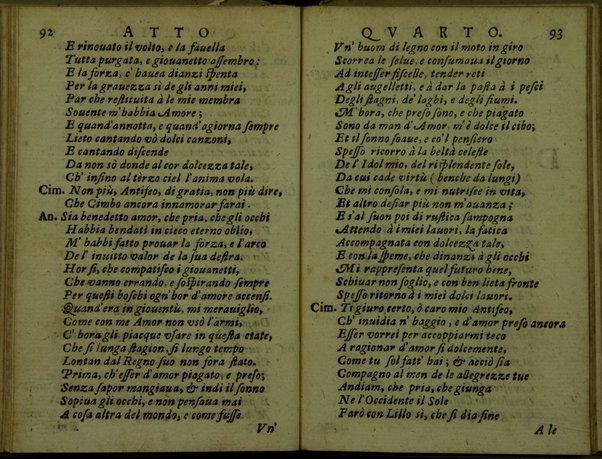 92 ATTO
E rinouato il volto, e la fauella
Tutta purgata, e giouanetto assembro;
E la forza, c' hauea dianzi spenta
Per la grauezza si de gli anni miei,
Par che restituita à le mie membra
Souente m' habbia Amore;
E quand'annotta, e quand'agiorna sempre
Lieto cantando vò dolci canzoni,
E cantando discende
Da non sò donde al cor dolcezza tale,
Ch' infino al terzo ciel l'anima vola.
Cim. Non più, Antifeo, di gratia, non più dire,
Che Cimbo ancora innamorar farai.
An. Sia benedetto amor, che pria, che gli occhi
Habbia bendati in cieco eterno oblio,
M' habbi fatto prouar la forza, e l'arco
De l' inuitto valor de la sua destra.
Hor sì, che compatisco i giouanetti,
Che vanno errando, e sospirando sempre
Per questi boschi ogn'hor d'amore accensi.
Quand'era in giouentù, mi merauiglio,
Come con me Amor non vsò l'armi,
C' hora gli piacque vsare in questa etate,
Che sì lunga stagion, sì lungo tempo
Lontan dal Regno suo non fora stato.
Prima, ch'esser d'amor piagato, e preso;
Senza sapor mangiaua, & indi il sonno
Sopiua gli occhi, e non pensaua mai
A cosa altra del mondo, e come fusse
Vn'
QVARTO. 93
Vn' huom di legno con il moto in giro
Scorrea le selue, e consumaua il giorno
Ad intesser fiscelle, tender reti
A gli augelletti, e à dar la pasta à i pesci
Degli stagni, de' laghi, e degli fiumi.
M' hora, che preso sono, e che piagato
Sono da man d' Amor, m' è dolce il cibo;
Et il sonno soaue, e co'l pensiero
Spesso ricorro à la beltà celeste
De l' Idol mio, del risplendente sole,
Da cui cade virtù (benche da lungi)
Che mi consola, e mi nutrisce in vita,
Et altro desiar più non m'auanza;
E s'al suon poi di rustica sampogna
Attendo à i miei lauori, la fatica
Accompagnata con dolcezza tale,
E con la speme, che dinanzi à gli occhi
Mi rappresenta quel futuro bene,
Schiuar non soglio, e con ben lieta fronte
Spesso ritorno à i miei dolci lauori.
Cim. Ti giuro certo, ò caro mio Antifeo,
Ch' inuidia n' haggio, e d'amor preso ancora
Esser vorrei per accoppiarmi teco
A ragionar d'amor sì dolcemente,
Come tu sol fatt' hai; & acciò sia
Compagno al men de le allegrezze tue
Andiam, che pria, che giunga
Ne l'Occidente il Sole
Farò con Lillo sì, che si dia fine
A le